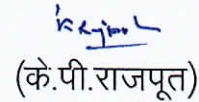 (के.पी.राजपूत)